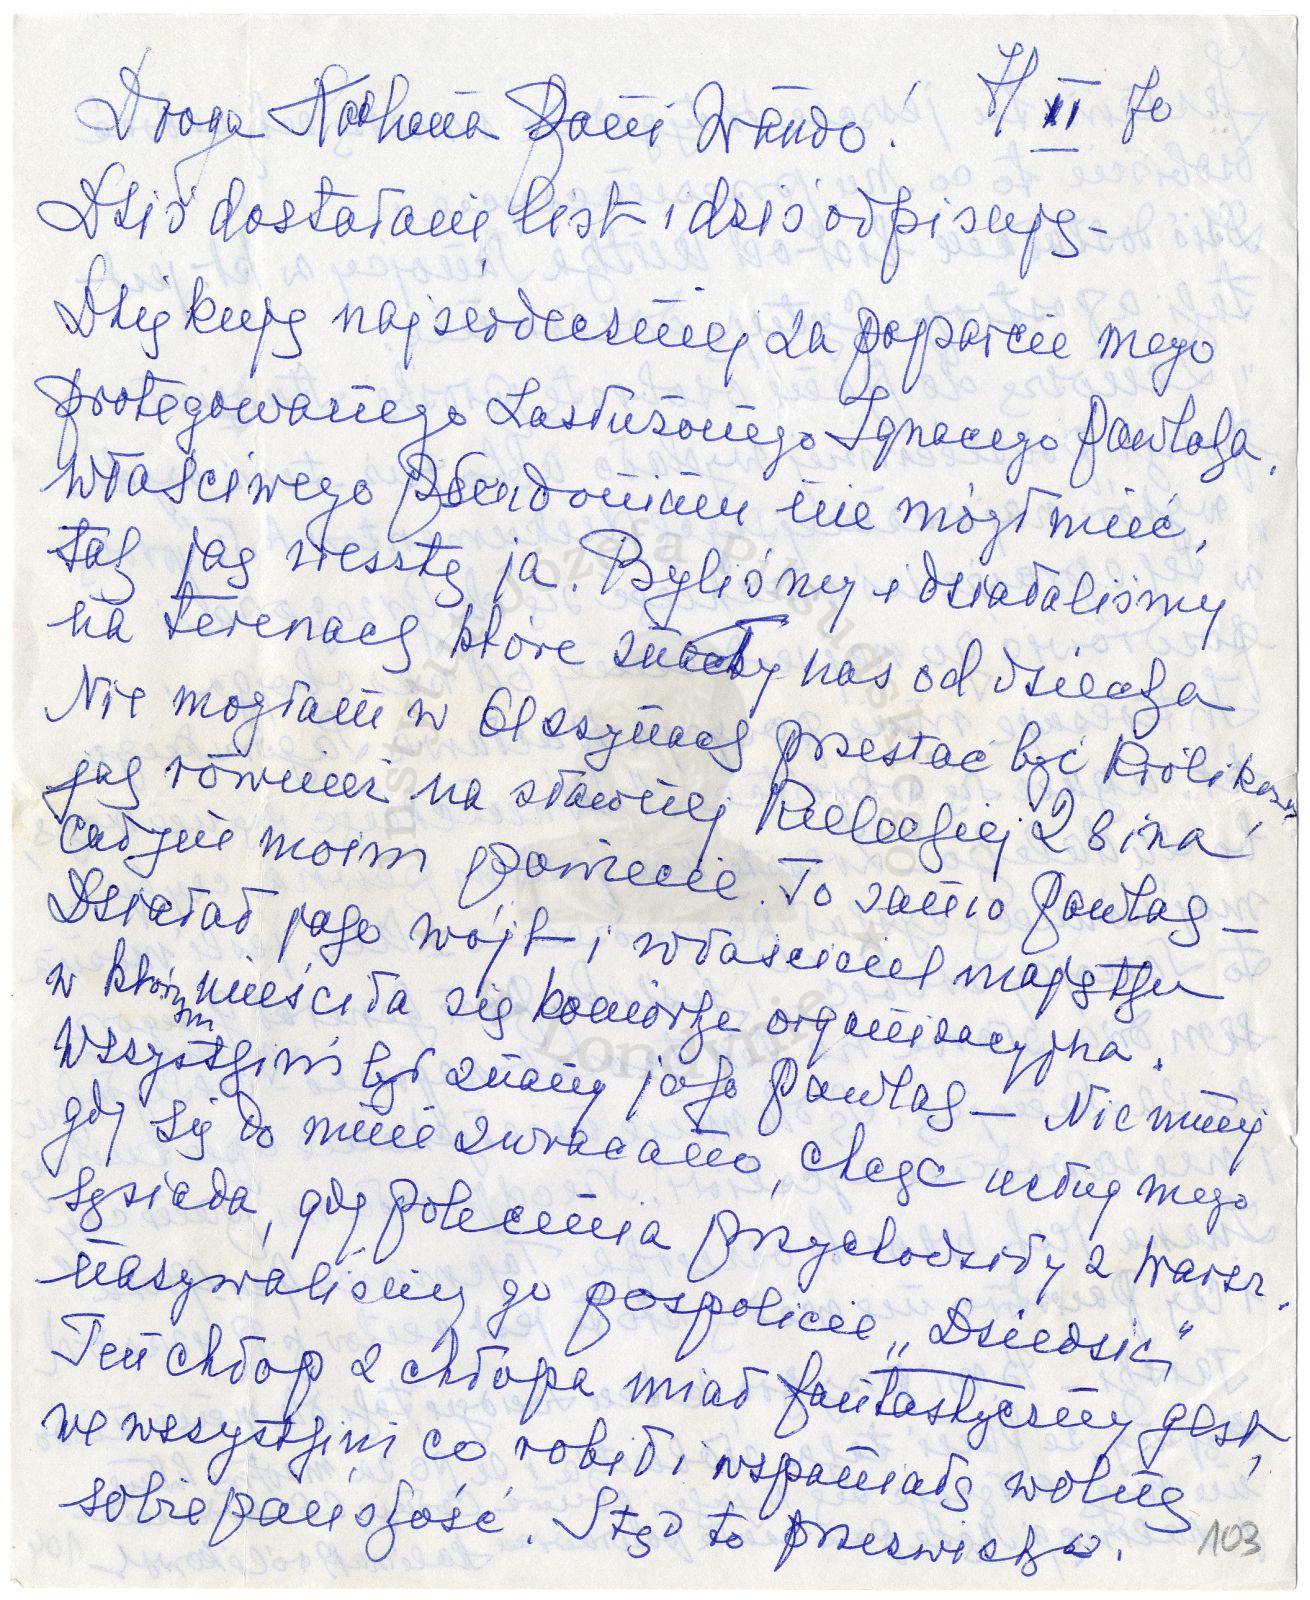 Droga Kochana Pani Wando! 7/XI 70
Dziś dostałam list i dziś odpisuję –
Dziękuję najserdeczniej za poparcie mego
protegowanego zasłużonego Ignacego Pawlaka,
właściwego pseudonimu nie mógł mieć,
tak jak zresztą ja. Byliśmy i działaliśmy
na terenach które znały nas od dziecka
Nie mogłam w Olszynach przestać być
jak również na sławnej Kieleckiej 28 i na
całym moim powiecie. To samo Pawlak –
Działał jako wójt i właściciel majątku
w którym mieściła się komórka organizacyjna.
Wszystkim był znany jako Pawlak – Niemniej
gdy się do mnie zwracano, chcąc usług mego
sąsiada, gdy polecenia przychodziły z Warsz.
nazywaliśmy go pospolicie „Dziedzic"
Ten chłop z chłopa miał fantastyczny gest,
we wszystkim co robił i wspaniałą wolną
sobiepańskość. Stąd to przezwisko.
103
Instytut Józefa Piłsudskiego
Londynie